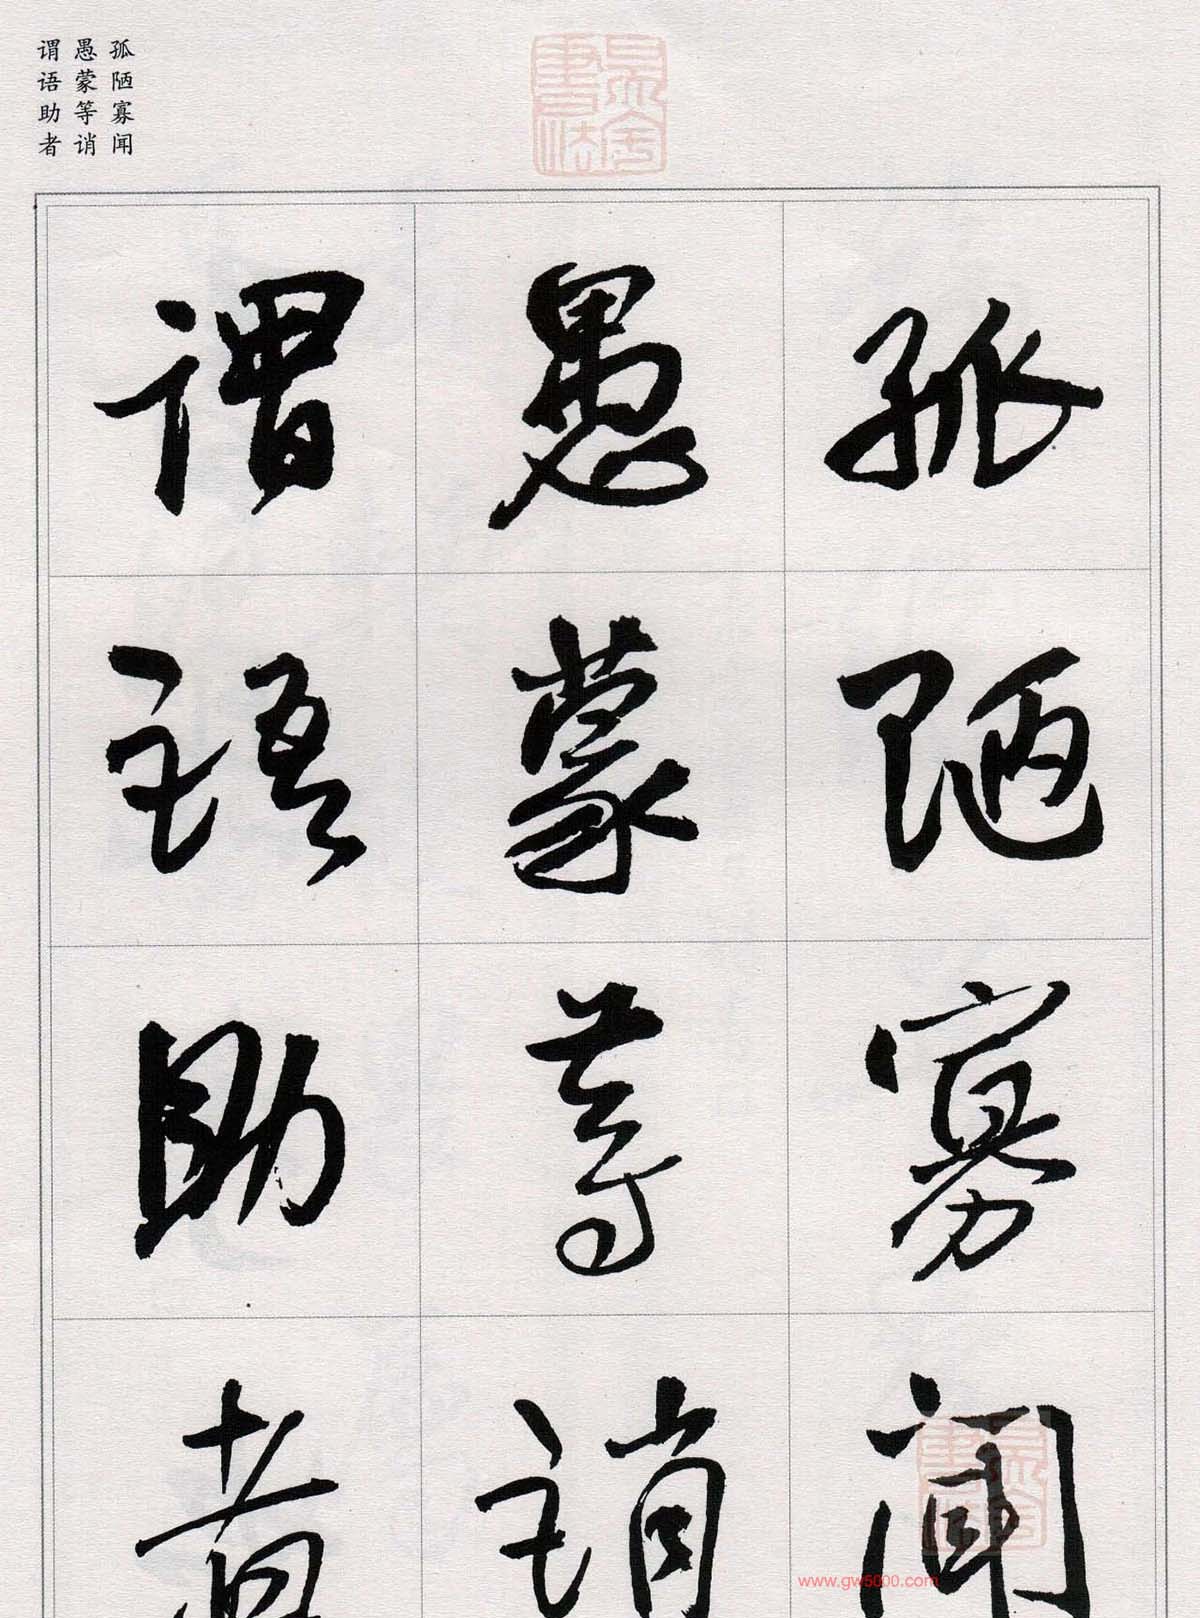 孤陋寡闻
愚蒙等诮
谓语助者
孤陋寡闻
愚蒙等誚
謂語助者
www.gw5000.com